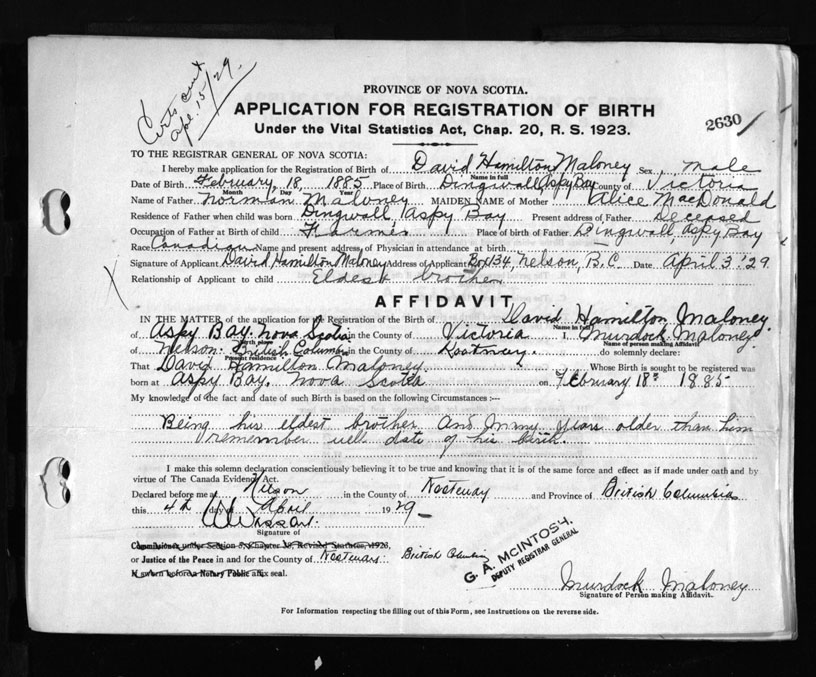 Certs out
apl. 5/29.
PROVINCE OF NOVA SCOTIA.
APPLICATION FOR REGISTRATION OF BIRTH
2630
Under the Vital Statistics Act, Chap. 20, R. S. 1923.
TO THE REGISTRAR GENERAL OF NOVA SCOTIA:
I hereby make application for the Registration of Birth of David Hamilton Maloney Sex male
Name in full
Date of Birth February, 18, 1885 Place of Birth Dingwall Aspy Bay County of Victoria
Month Day Year
Name of Father Norman Maloney MAIDEN NAME of Mother Alice MacDonald
Residence of Father when child was born Dingwall, Aspy Bay Present address of Father Deceased
Occupation of Father at Birth of child Farmer Place of birth of Father Dingwall Aspy Bay
Race Canadian Name and present address of Physician in attendance at birth
Signature of Applicant David Hamilton Maloney Address of Applicant Box 134, Nelson, B.C. Date April 3 '29
Relationship of Applicant to child Eldest brother
AFFIDAVIT
IN THE MATTER of the application for the Registration of the Birth of David Hamilton Maloney.
Name in full
of Aspy Bay. Nova Scotia in the County of Victoria I, Murdock Maloney
Birth place Name of person making Affidavit
of Nelson. British Columbia in the County of Kootenay. do solemnly declare:
Present residence
That David Hamilton Maloney. Whose Birth is sought to be registered was
born at Aspy Bay. Nova Scotia on February 18th 1885-
My knowledge of the fact and date of such Birth is based on the following Circumstances :—
Being his eldest brother and many years older than him
I remember well date of his birth.
I make this solemn declaration conscientiously believing it to be true and knowing that it is of the same force and effect as if made under oath and by
virtue of The Canada Evidence Act.
Declared before me at Nelson in the County of Kootenay and Province of British Columbia
this 4th day of April 1929-
Signature of
Commissioner under Section 3, Chapter 38, Revised Statutes, 1923,
or Justice of the Peace in and for the County of Kootenay: British Columbia
If sworn before a Notary Public affix seal.
G. A. McINTOSH,
DEPUTY REGISTRAR GENERAL
Murdock Maloney
Signature of Person making Affidavit.
For Information respecting the filling out of this Form, see Instructions on the reverse side.